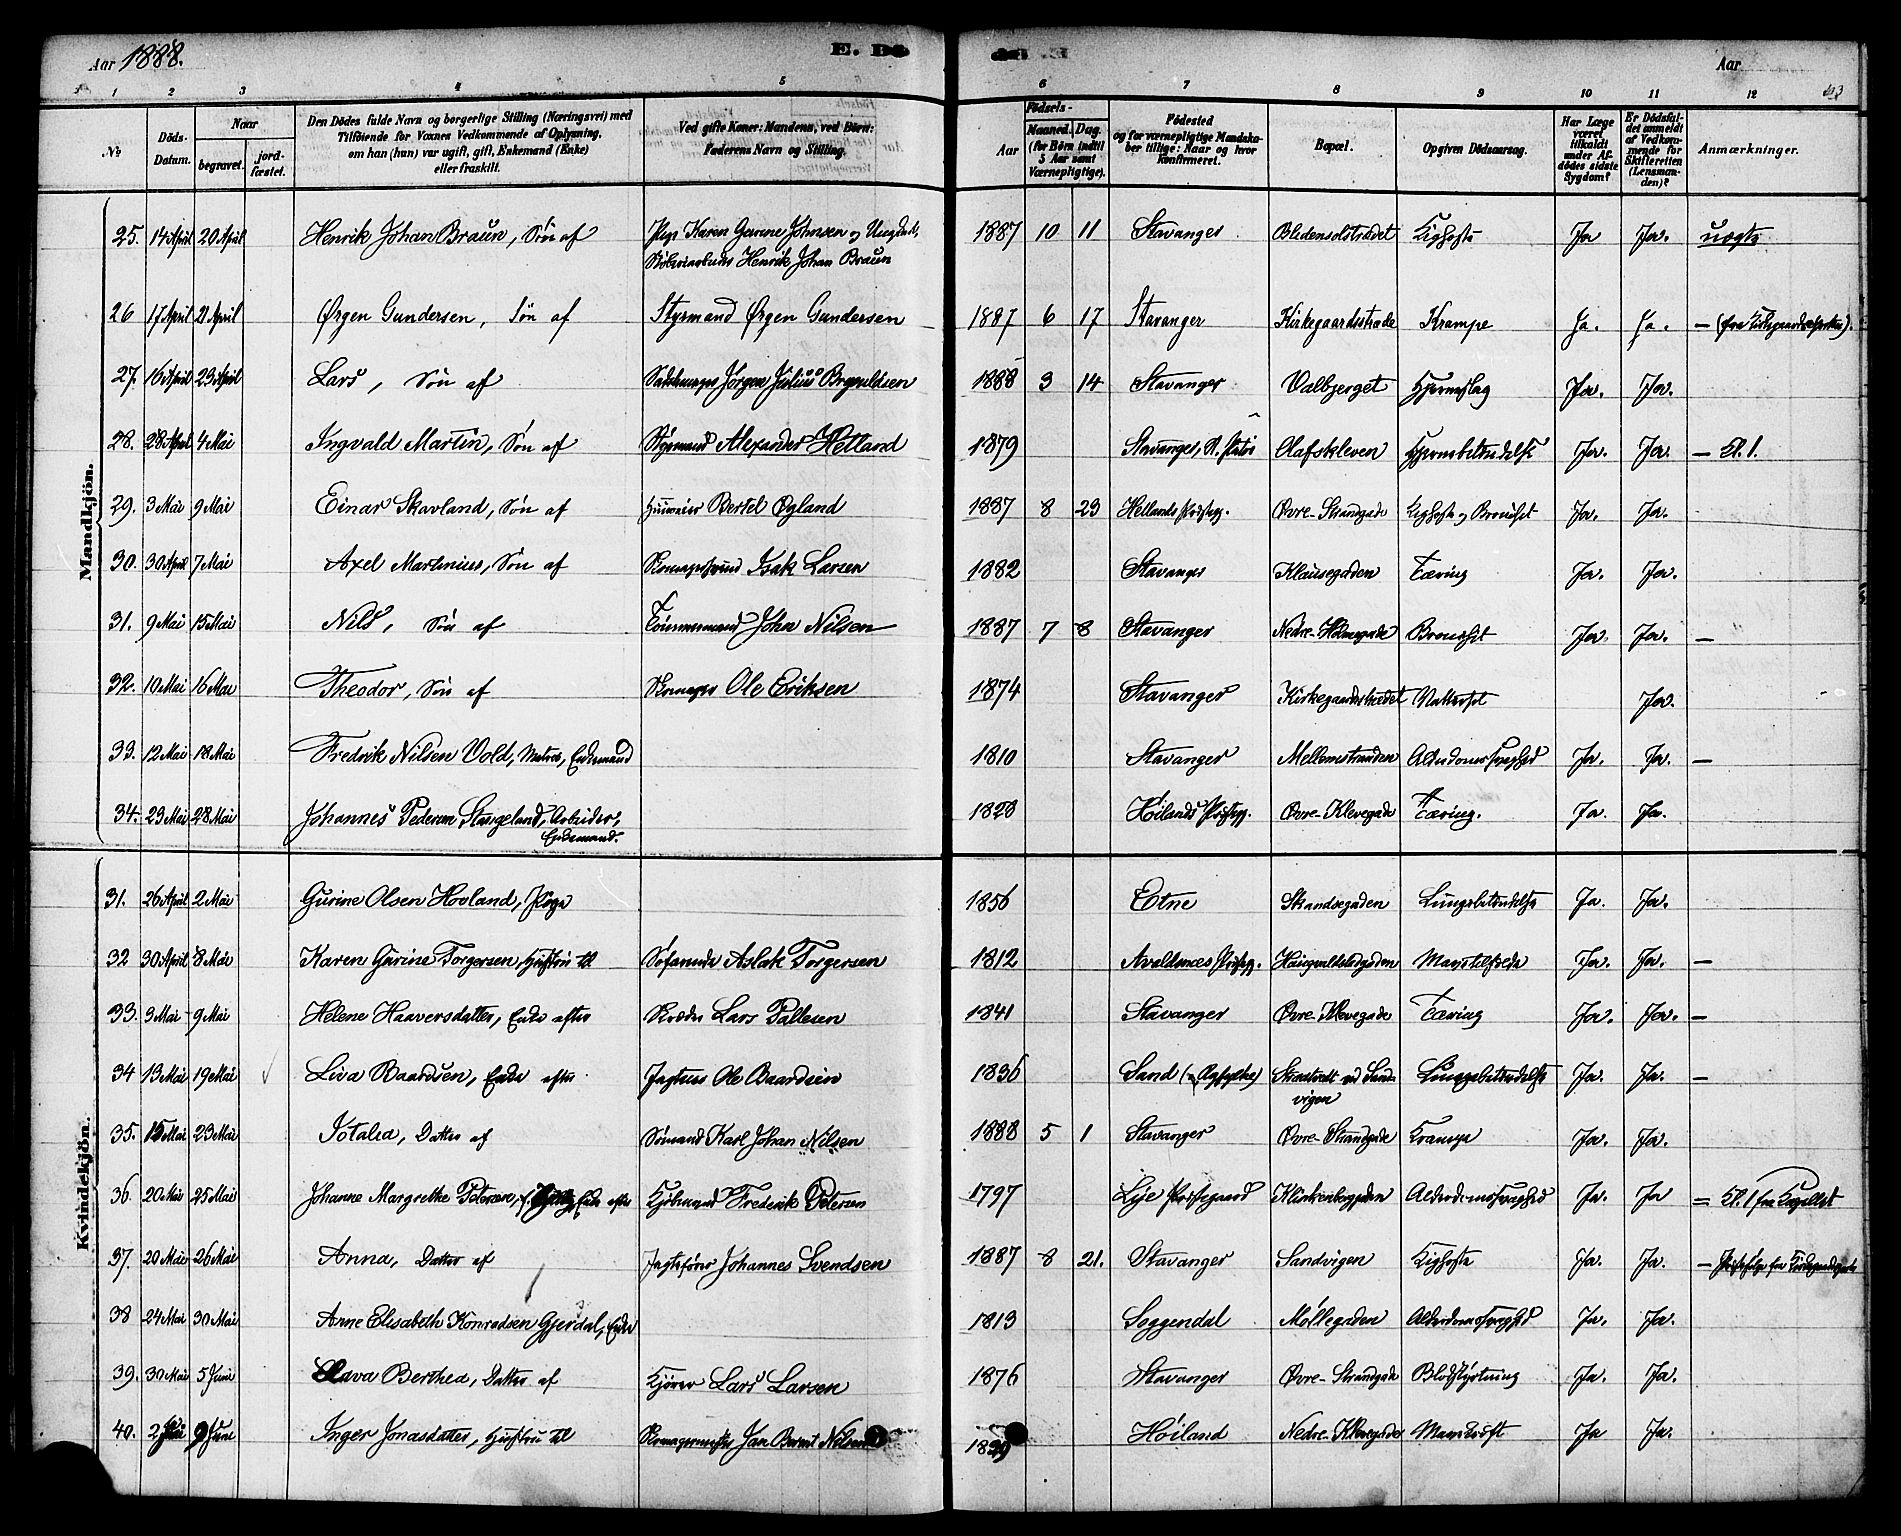 Aar 1888.
E. Dø
Aar
1 2 3 4 5 6 7 8 9 10 11 12
No
Döds-Datum.
Naar
begravet.
jord-fæstet.
Den Dödes fulde Navn og borgerlige Stilling (Næringsvei) med
Tilföiende for Voxnes Vedkommende af Oplysning,
om han (hun) var ugift, gift, Enkemand (Enke)
eller fraskilt.
Ved gifte Koner: Mandens, ved Börn:
Faderens Navn og Stilling.
Aar
Födsels-
Maaned. Dag.
(for Börn indtil
5 Aar samt
Værnepligtige).
Födested
og for værnepligtige Mandska-
ber tillige: Naar og hvor
konfirmeret.
Bopæl.
Opgiven Dödsaarsag.
Har Læge
været
tilkaldt
under Af-
dödes sidste
Sygdom?
Er Dödsfal-
det anmeldt
af Vedkom-
mende for
Skifteretten
(Lensman-
den)?
Anmærkninger.
Mandkjön.
25. 14 April 20 April Henrik Johan Braun, Søn af Pige Karen Gurine Johnsen og Ungkarl, 1887 10 11 Stavanger Kighoste Ja Ja. uægte
Henrik Johan Braun
26 17 April 21 April Ørgen Gundersen, Søn af Styrmand Ørgen Gundersen 1887 6 17 Stavanger Kirkegaardsstræde Krampe Ja. Ja. —
27. 16 April 23 April Lars, Søn af Jørgen Julius 1888 3 14 Stavanger Valbjerget Hjerneslag Ja. Ja.
28. 28 April 4 Mai Ingvald Martin, Søn af Styrmand Alexander Helland 1879 Stavanger, Olafskleven Hjernebetændelse Ja. Ja. — Kl. 1.
29. 3 Mai 9 Mai Einar Skavland, Søn af Bertel Øyland 1887 8 23 Hellands Præstegj. Øvre-Strandgade Kighoste og Bronchit Ja. Ja.
30. 30 April 7 Mai Axel Martinius, Søn af Skomagersvend Isak Larsen 1882 Stavanger Klausegaden Tæring Ja. Ja.
31. 9 Mai 15 Mai Nils, Søn af Tømmermand John Nilsen 1887 7 8 Stavanger Nedre-Holmegade Bronchit Ja. Ja. —
32. 10 Mai 16 Mai Theodor, Søn af Skomager Ole Eriksen 1874 Stavanger Kirkegaardsstrædet Vattersot Ja.
33. 12 Mai 18 Mai Fredrik Nilsen Vold, Matros, Enkemand 1810 Stavanger Mellemstranden Alderdomssvaghed Ja. Ja. —
34. 23 Mai 28 Mai Johannes Pedersen Stangeland, Arbeider, 1828 Høilands Præstegj. Øvre-Klevegade Tæring. Ja. Ja.
Enkemand.
Kvindekjön.
31. 26 April 2 Mai Gurine Olsen Hovland, Pige 1856 Etne Strandgaden Lungebetændelse Ja. Ja.
32 30 April 8 Mai Karen Gurine Torgersen, Hustru til Søfarende Aslak Torgersen 1812 Avaldsnes Præstegj. Ja. Ja. —
33. 3 Mai 9 Mai Helene Haaversdatter, Enke efter Skræder Lars Pallesen 1841 Stavanger Øvre-Klevegade Tæring Ja. Ja. —
34 13 Mai 19 Mai Liva Baardsen, Enke efter Ole Baardsen 1836 Sand (i Ryfylke) Strandvedt ved Sand- Lungebetændelse Ja. Ja. —
vigen
35. 15 Mai 23 Mai Jotalia, Datter af Sømand Karl Johan Nilsen 1888 5 1 Stavanger Øvre-Strandgade Krampe Ja. Ja.
36. 20 Mai 25 Mai Johanne Margrethe Petersen, Enke efter Kjøbmand Frederik Petersen 1797 Lye Præstegaard Klinkenberggaden Alderdomssvaghed Ja. Ja = Kl. 1 fra Kapellet
37. 20 Mai 26 Mai Anna, Datter af Jagtefører Johannes Svendsen 1887 8 21. Stavanger Sandvigen Kighoste Ja. Ja. —
38 24 Mai 30 Mai Anne Elisabeth Konradsen Gjerdal, Enke 1813 Soggendal Møllegaden Alderdomssvaghed Ja. Ja.
39. 30 Mai 5 Juni Clava Berthea, Datter af Kjører Lars Larsen 1876 Stavanger Øvre-Strandgade Blodstyrtning Ja. Ja.
40. 2 Juni 9 Juni Inger Jonasdatter, Hustru til Skomagermester Jan Berent Nilsen 1829 Høiland Nedre-Klevegade Mavekræft Ja Ja.